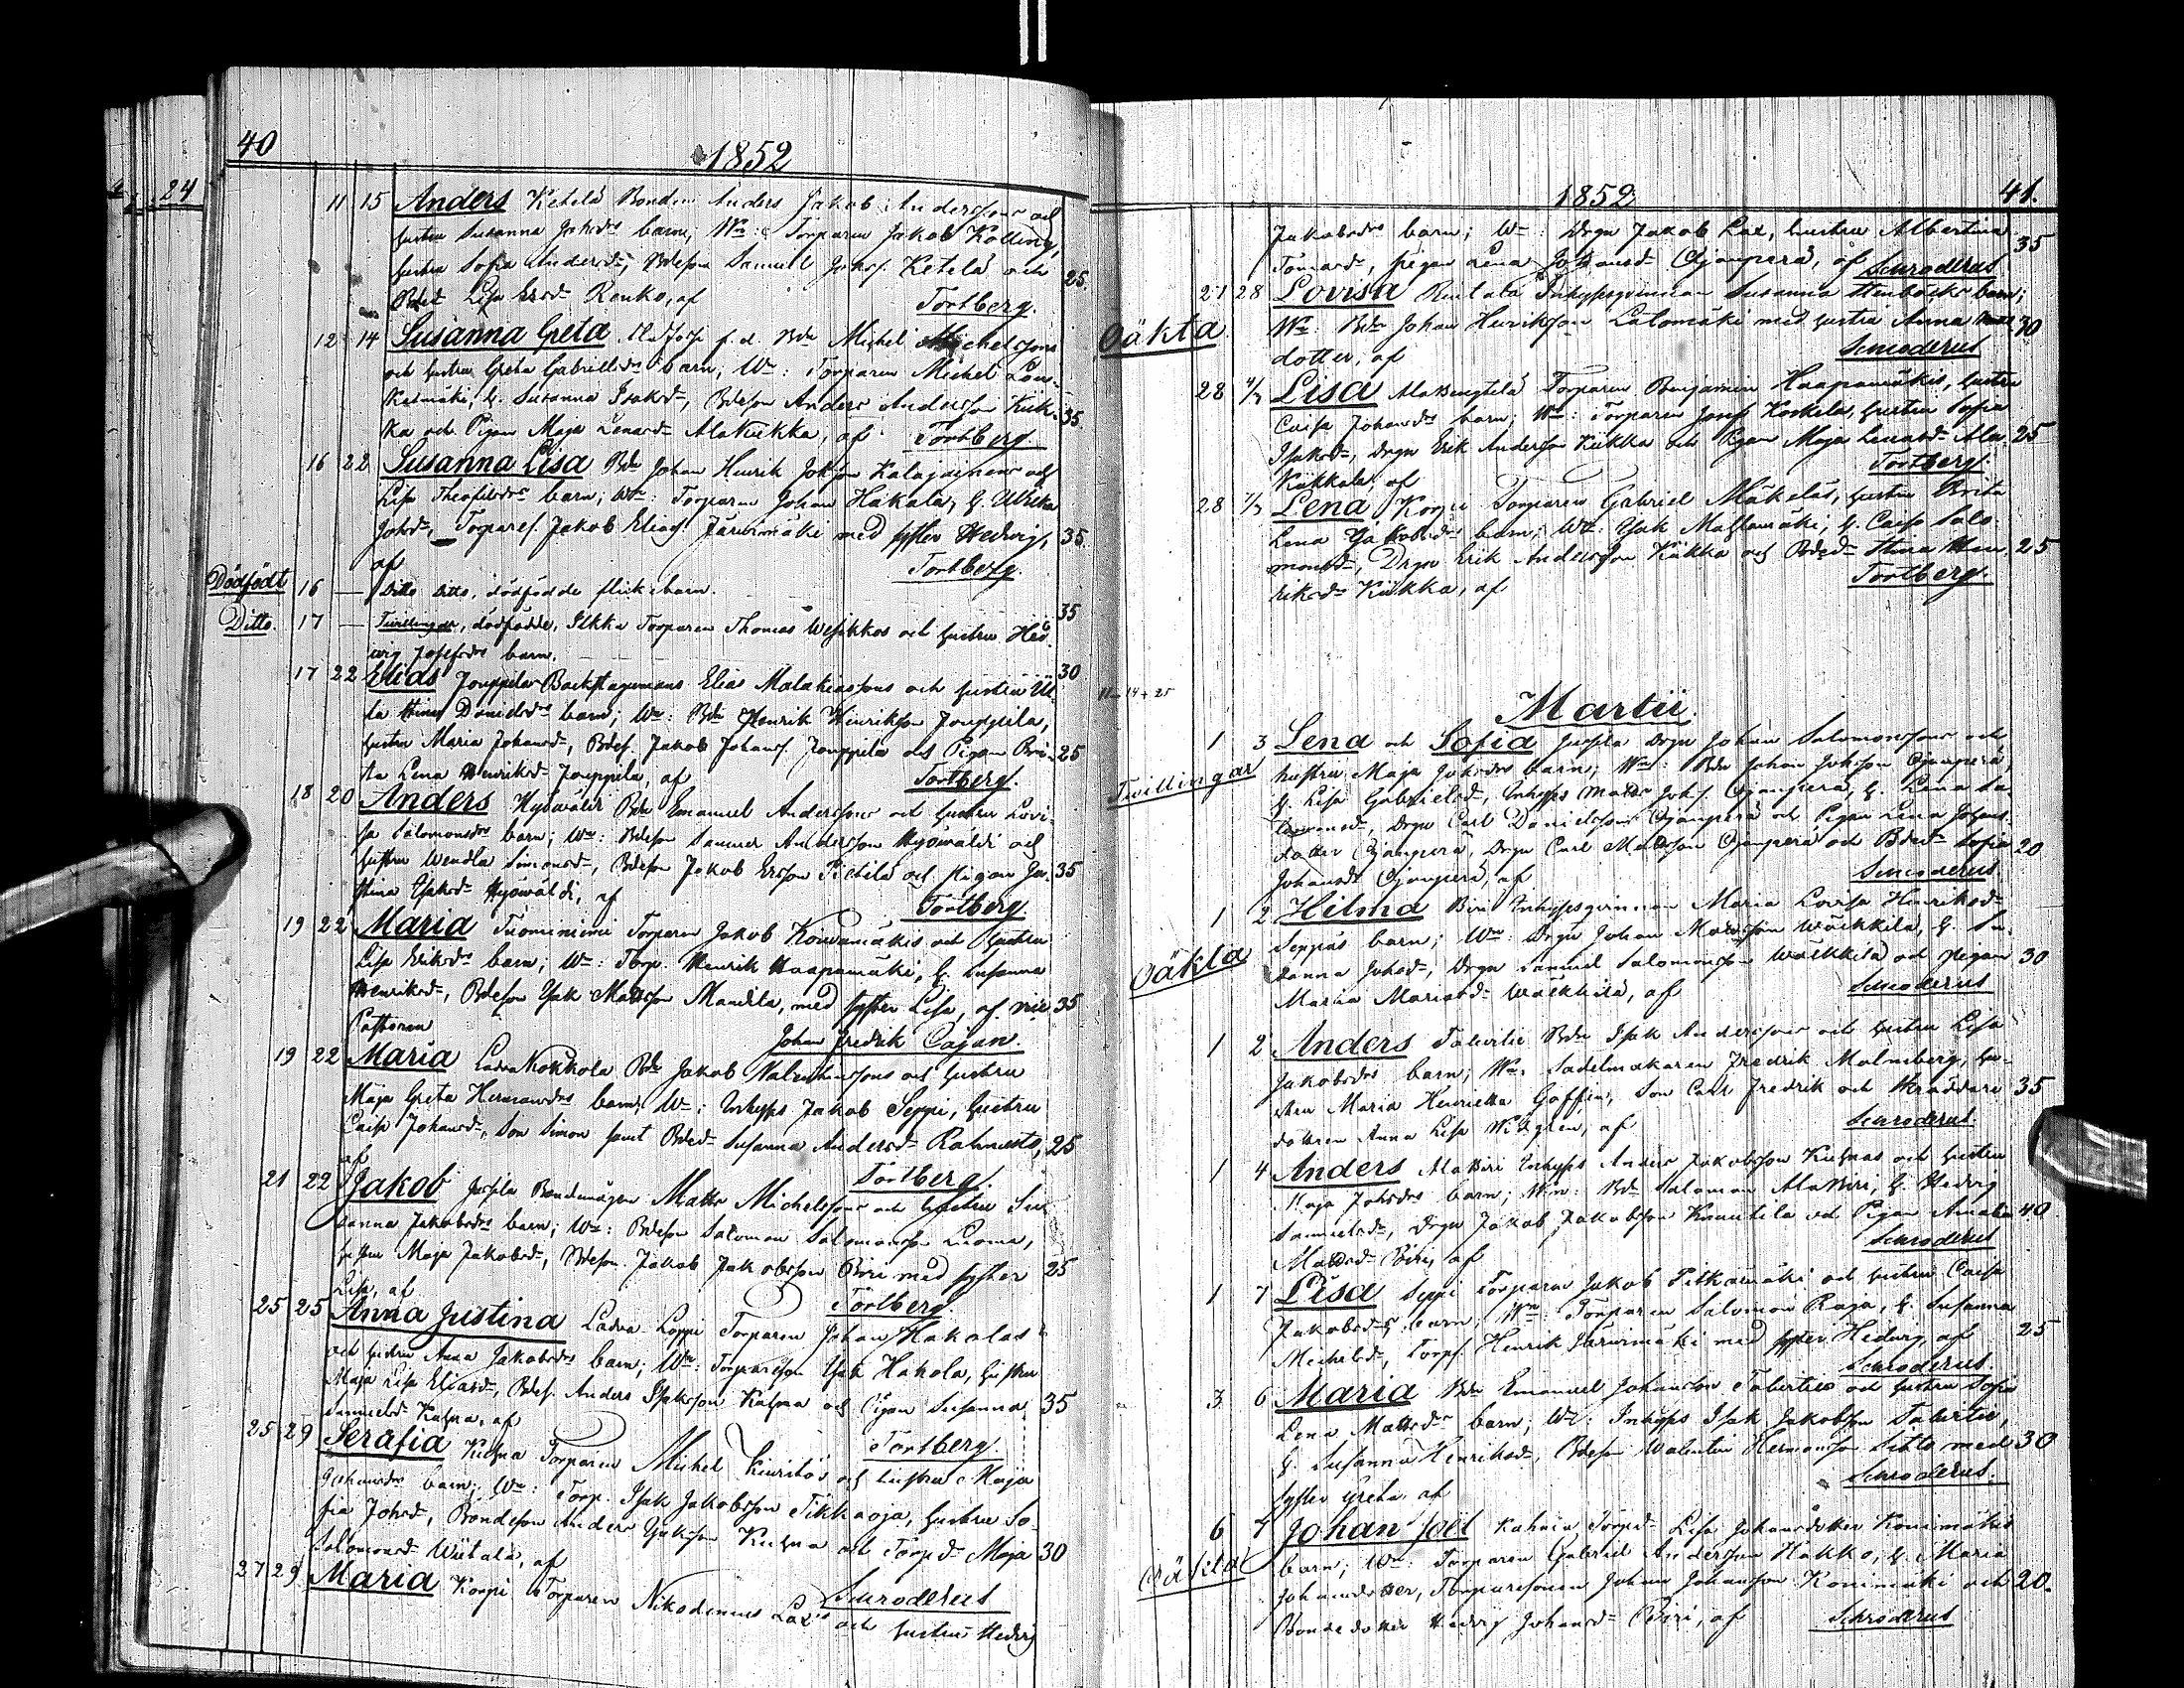 40
1852
24
11 15 Anders Ketelä Bonden Anders Jakob Anderssons och
hustru Susanna Johsdrs barn; Wn: Torparen Jakob Kölling,
hustru Sofia Andersd, Bdeson Samuel Johss. Ketelä och
Lisa Ersd Renko, af Tortberg. 25.
12 14 Susanna Greta f. d. Bdn Michel Michelssons
och hustru Greta Gabrielsdrs barn; Wn: Torparen Michel
H. Susanna Isaksd, Bdeson Anders Andersson Kuk-
ka och Pigan Maja Lenasd Alakukka, af Tortberg. 35.
16 22 Susanna Lisa Bdn Johan Henrik Johsson och
Lisa Theofilsdrs barn; Wn: Torparen Johan Hakala, H. Ulrika
Johsd, Torpares. Jakob Eliass. Järwimäki med syster Hedwig, 35.
af Tortberg.
Dödfödt 16 — Ditto Ditto, dödfödde flickebarn. 35
Ditto. 17 — Twillingar, dödfödde, Ilkka Torparen Thomas Wesikkos och hustru Hed
wig Josefsdrs barn. 30
17 22 Elias Jouppila Backstugumans Elias Malakiassons och hustru Ul-
la Stina Danielsdrs barn; Wn: Bdn Henrik Henriksson Jouppila,
hustru Maria Johansd, Bdes. Jakob Johanss. Jouppila och Pigan Bri- 25
ta Lena Henriksd Jouppila, af Tortberg.
18 20 Anders Hyöwälti Bdn Emanuel Anderssons och hustru Lovi-
sa Salomonsdrs barn; Wn: Bdeson Samuel Andersson Hyöwälti och
hustru Wendla Simonsd, Bdeson Jakob Ersson Pietilä och pigan 35
Stina Isaksd Hyöwälti, af Tortberg.
19 22 Maria Tuominiemi Torparen Jakob Koiwumäkis och hustru
Lisa Eriksdrs barn; Wn: Torp. Henrik Haapamäki, H. Susanna
Henriksd, Bdeson Isak Mattsson Mantila, med syster Lisa, af vice 35
Pastoren Johan Fredrik Cajan.
19 22 Maria Ladva Kokkola Bdn Jakob Valentinssons och hustru
Maja Greta Hermansdrs barn; Wn: Inhyses Jakob Seppi, hustru
Caisa Johansd, Son Simon samt Bded Susanna Andersd Rahnasto, 25
af Tortberg.
21 22 Jakob Jussila Bondemågen Matts Michelssons och hustru Su-
sanna Jakobsdrs barn; Wn: Bdeson Salomon Salomonsson Luoma,
hustru Maja Jakobsd, Bdeson Jakob Jakobsson Biri med syster 25
Lisa, af Tortberg.
25 25 Anna Justina Ladva Loppi Torparen Johan Hakalas
och hustru Anna Jakobsdrs barn; Wn: Torpareson Isak Hakola, hustru
Maja Lisa Eliasd, Bdes. Anders Isaksson och Pigan Susanna 35
Samuelsd af Tortberg.
25 29 Serafia Torparen Michel och hustru Maja
Johansdrs barn; Wn: Torp. Isak Jakobsson Tikkaoja, hustru So-
fia Johsd, Bondeson Anders Isaksson och Torpd Maja 30
Salomonsd Wiitala, af Schroderus
27 29 Maria Korpi Torparen Nikodemus och hustru Hedvig
1852 41.
Jakobsdrs barn; Wn: Drgn Jakob Lax, hustru Albertina 35
pigan Lena Johansd Ojanperä, af Schroderus.
Oäkta 27 28 Lovisa Rintala Inhysesqvinnan Susanna Stenbäcks barn;
Wn: Bdn Johan Henriksson Lalomäki med hustru Anna 30
dotter, af Schroderus
28 4/3 Lisa Alabengtelä Torparen Benjamin Haapamäkis, hustru
Caisa Johansdrs barn; Wn: Torparen Josef Koskela, hustru Sofia
Isaksd, Drgn Erik Andersson Kukkka och Pigan Maja Lenasd Ala- 25
Kukkala, af Tortberg.
28 7/3 Lena Korpi Torparen Gabriel Mäkeläs, hustru Brita
Lena Jakobsdrs barn; Wn: Isak H. Caisa Salo-
monsd, Drgn Erik Andersson Kukka och Bded Stina Hen- 25
riksd Kukka, af Tortberg.
11 – 14 + 25
Martii
Twillingar 1 3 Lena och Sofia Jussila Drgn Johan Salomonssons och
hustru Maja Johsdrs barn; Wn: Bdn Johan Johsson Ojanperä,
H. Lisa Gabrielsd, Inhyses Matts Johs. Ojanperä, H. Lena Sa-
lomonsd, Drgn Carl Danielsson Ojanperä och Pigan Lena Johans-
dotter Ojanperä, Drgn Carl Mattsson Ojanperä och Bded Sofia 20
Johansd Ojanperä, af Schroderus.
Oäkta 1 2 Hilma Biri Inhysesqvinnan Maria Lovisa Henriksd
Seppäs barn; Wn: Drgn Johan Mattsson Wäkkilä, H. Su-
sanna Johsd, Drgn Samuel Salomonsson Wäkkilä och pigan 30
Maria Mariasd Wäkkilä, af Schroderus
1 2 Anders Talvitie Bdn Isak Anderssons och hustru Lisa
Jakobsdrs barn; Wn: Sadelmakaren Fredrik Malmberg, hu-
stru Maria Henrietta Goffin, Son Carl Fredrik och Skräddare 35
dottren Anna Lisa Widgren, af Schroderus.
1 4 Anders AlaBiri Inhyses Anders Jakobsson och hustru
Maja Johsdrs barn; Wn: Bdn Salomon AlaBiri, H. Hedvig
Samuelsd, Drgn Jakob Jakobsson Knuutila och Pigan Amalia 40
Mattsd Biri, af Schroderus
1 7 Lisa Seppi Torparen Jakob Pitkämäki och hustru Caisa
Jakobsdrs barn; Wn: Torparen Salomon Raja, H. Susanna
Michelsd, Torps. Henrik Järwimäki med syster Hedvig, af 25
Schroderus.
3 6 Maria Bdn Emanuel Johansson Talvities och hustru Sofia
Lena Mattsdrs barn; Wn: Inhyses Isak Jakobsson Talvitie,
H. Susanna Henriksd, Bdeson Walentin Hermansson Ditto med 30
syster Greta, af Schroderus.
Oäkta 6 7 Johan Joël Torpd Lisa Johansdotter Konimäkis
barn; Wn: Torparen Gabriel Andersson Hakko, H. Maria
Johansdotter, Torparesonen Johan Johansson Konimäki och 20.
Bondedotter Hedvig Johansd Biri, af Schroderus